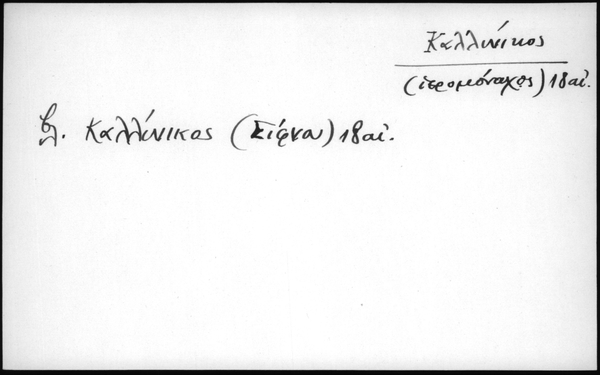 Καλλίνικος
(ἱερομόναχος) 18 αἰ.
βλ. Καλλίνικος (Σίφνου) 18 αἰ.